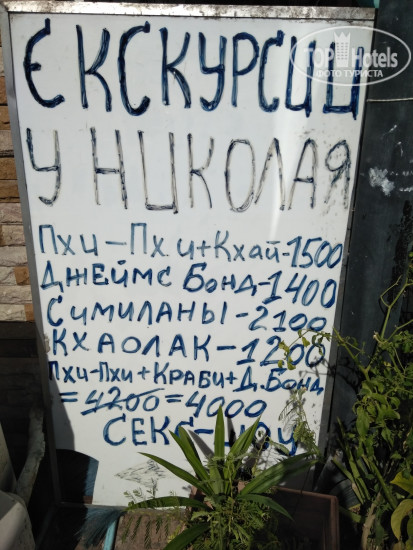 TopHotels
ФОТО ТУРИСТА
ЄКСКУРСИИ
У НИКОЛАЯ
ПХИ-ПХИ+КХАЙ-1500
ДЖЕЙМС БОНД-1400
СИМИЛАНЫ-2100
КХАОЛАК-1200
ПХИ-ПХИ+КРАБИ+Д.БОНД
=4200=4000
СЕКС-ШОУ